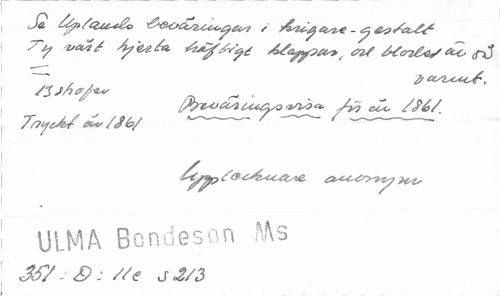 Se Uplands beväringar i krigare-gestalt
Ty vårt hjerta häftigt klappar, och blodet är så
varmt.
13 strofer
Beväringsvisa för år 1861.
Tryckt år 1861
Upptecknare anonym
ULMA Bondeson Ms
351:D:11c s 213